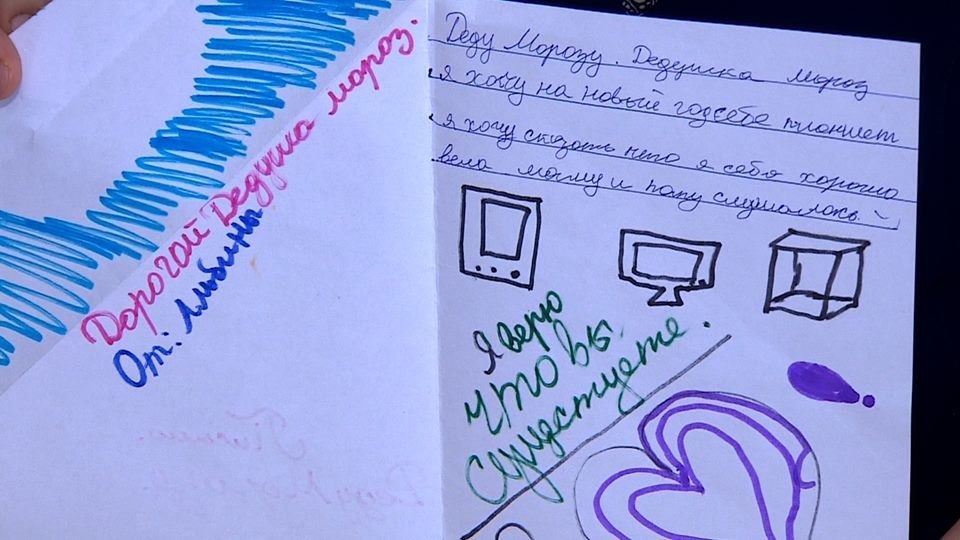 Дорогой Дедушка мороз.
От: Альбины
Деду Морзу. Дедушка мороз
я хочу на новый год себе планшет
я хочу сказать что я себя хорошо
вела маму и папу слушалась.
Я верю
что вы
существуете.